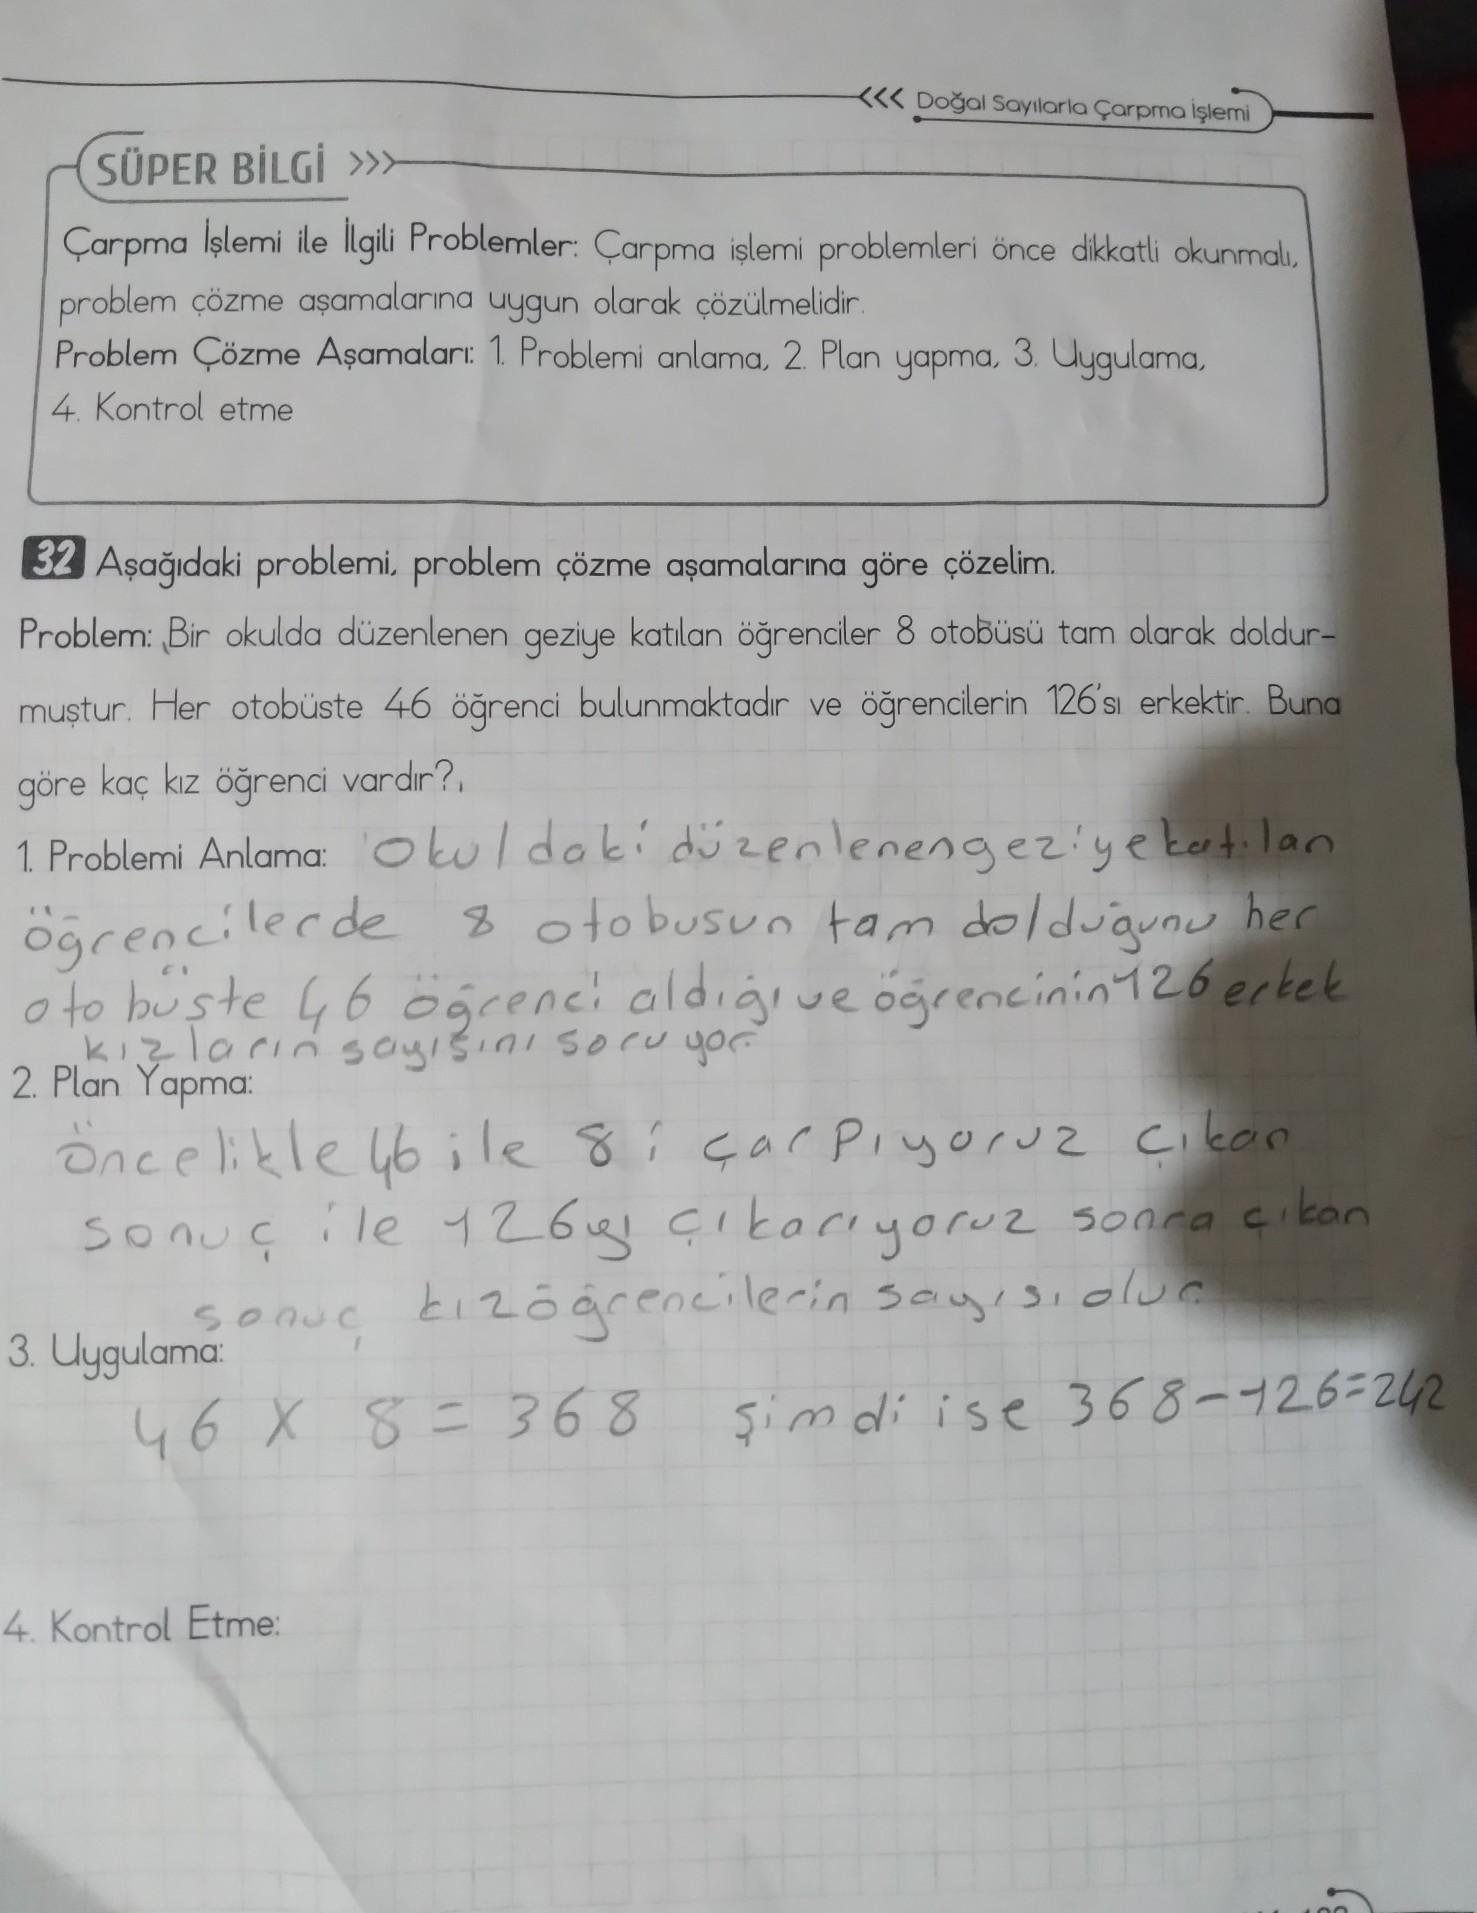 <<< Doğal Sayılarla Çarpma İşlemi
SÜPER BİLGİ >>>
Çarpma İşlemi ile İlgili Problemler: Çarpma işlemi problemleri önce dikkatli okunmalı,
problem çözme aşamalarına uygun olarak çözülmelidir.
Problem Çözme Aşamaları: 1. Problemi anlama, 2. Plan yapma, 3. Uygulama,
4. Kontrol etme
32 Aşağıdaki problemi, problem çözme aşamalarına göre çözelim.
Problem: Bir okulda düzenlenen geziye katılan öğrenciler 8 otobüsü tam olarak doldur-
muştur. Her otobüste 46 öğrenci bulunmaktadır ve öğrencilerin 126'sı erkektir. Buna
göre kaç kız öğrenci vardır?
1. Problemi Anlama: Okuldaki düzenlenen geziye katılan
öğrencilerde 8 otobusun tam dolduğunu her
otobüste 46 öğrenci aldığı ve öğrencinin 126 erkek
kızların sayısını soruyor.
2. Plan Yapma:
Öncelikle 46 ile 8 i çarpıyoruz çıkan
sonuç ile 126yı çıkarıyoruz sonra çıkan
sonuç kız öğrencilerin sayısı olur.
3. Uygulama:
46 x 8 = 368 şimdi ise 368-126=242
4. Kontrol Etme: